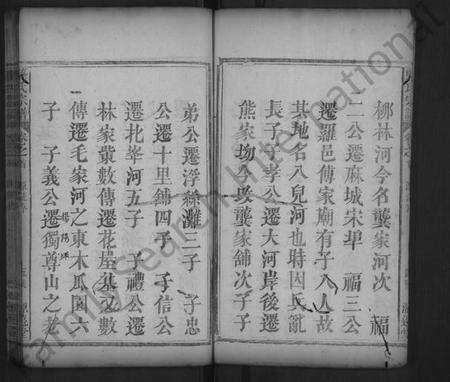 柳林河今名龔家河次 福
二公遷麻城宋埠 福三公
遷羅邑傅家廟有子八人故
其地名八兒河也時因氏亂
長子子孝公遷大河岸後遷
熊家坳今改龔家舖次子子
弟公遷浮 灘三子 子忠
公遷十里舖四子 子信公
遷北峯河五子 子禮公遷
林家 數傳遷花屋基又數
傳遷毛家河之東木瓜園六
子 子義公遷獨尊山之老
Family Search International